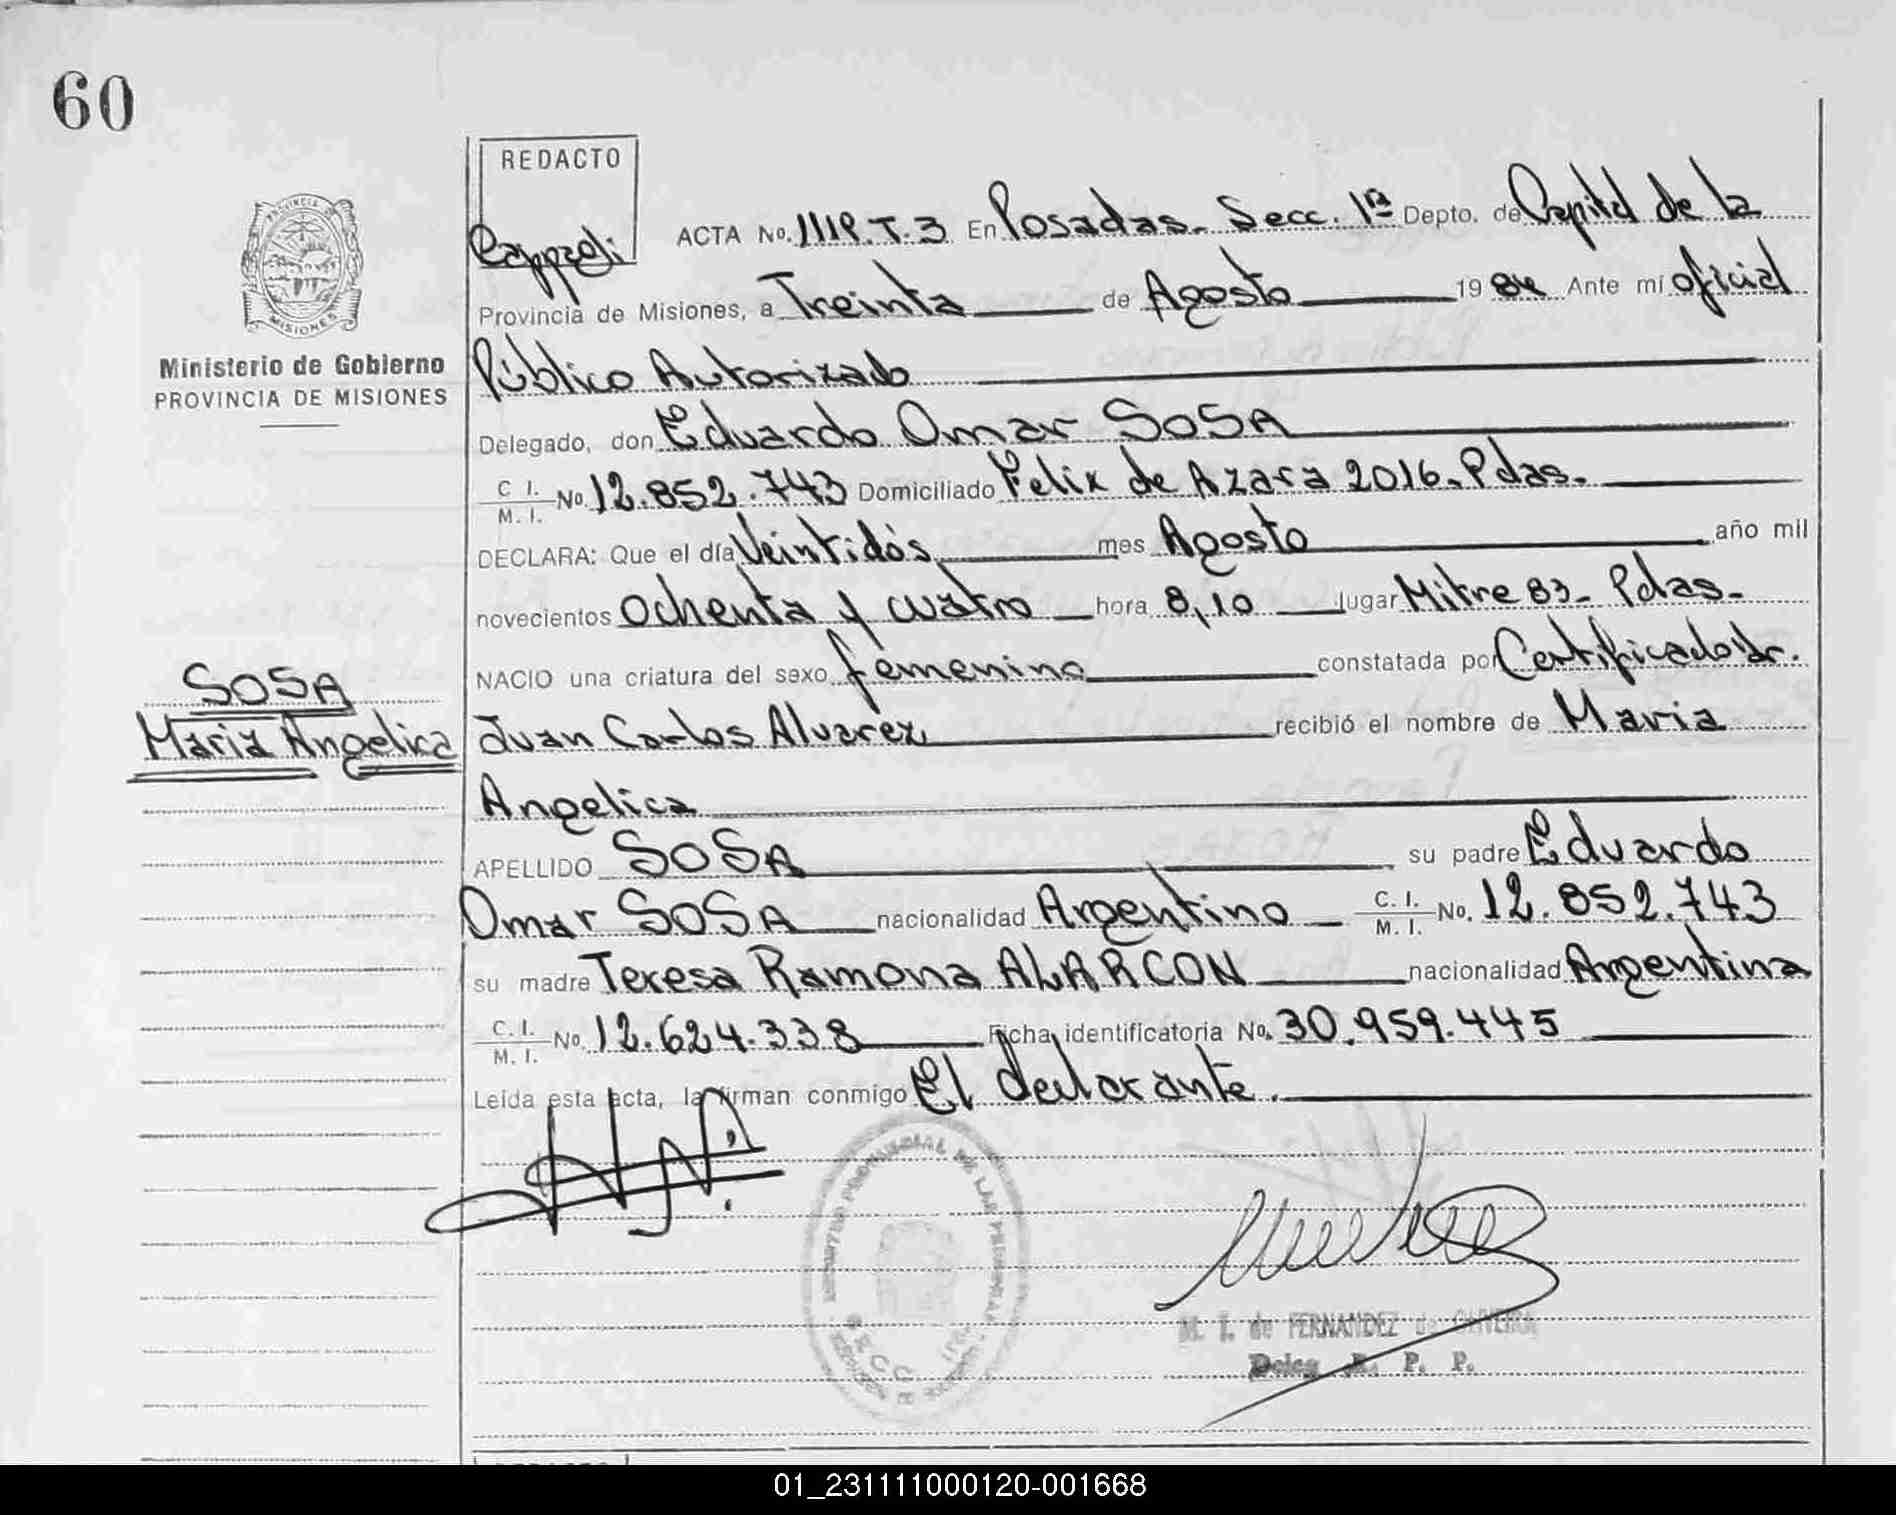 60
REDACTO
Cappeli
ACTA No. 1119.T.3 En Posadas. Secc. 1ª Depto. de Capital de la
Provincia de Misiones, a Treinta de Agosto 1984 Ante mí oficial
Público Autorizado
PROVINCIA DE
MISIONES
Ministerio de Gobierno
PROVINCIA DE MISIONES
Delegado, don Eduardo Omar SOSA
C. I. / M. I. No. 12.852.743 Domiciliado Felix de Azara 2016. Pdas.
DECLARA: Que el día Veintidós mes Agosto año mil
novecientos Ochenta y cuatro hora 8,10 lugar Mitre 83 - Pdas.
NACIO una criatura del sexo femenino constatada por Certificado Dr.
SOSA
Maria Angelica
Juan Carlos Alvarez recibió el nombre de Maria
Angelica
APELLIDO SOSA su padre Eduardo
Omar SOSA nacionalidad Argentino C. I. / M. I. No. 12.852.743
su madre Teresa Ramona ALARCON nacionalidad Argentina
C. I. / M. I. No. 12.624.338 Ficha identificatoria No. 30.959.445
Leída esta acta, la firman conmigo El declarante.
M. I. de FERNANDEZ de OLIVEIRA
Deleg. R. P. P.
01_231111000120-001668